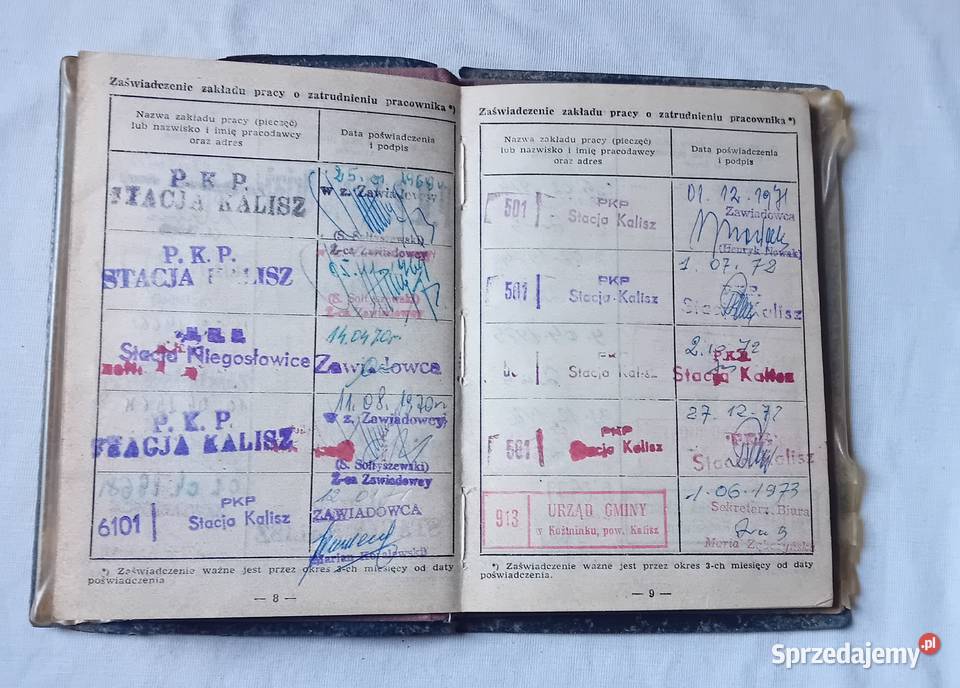 Zaświadczenie zakładu pracy o zatrudnieniu pracownika *)
Nazwa zakładu pracy (pieczęć)
lub nazwisko i imię pracodawcy
oraz adres
Data poświadczenia
i podpis
P. K. P.
STACJA KALISZ
w z. Zawiadowcy
Z-ca Zawiadowcy
P. K. P.
STACJA KALISZ
(S. Sołtyszewski)
Z-ca Zawiadowcy
Stacja Niegosławice
14.04.70r
Zawiadowca
P. K. P.
STACJA KALISZ
11.08.1970r
w z. Zawiadowcy
(S. Sołtyszewski)
Z-ca Zawiadowcy
6101
PKP
Stacja Kalisz
ZAWIADOWCA
Marian
*) Zaświadczenie ważne jest przez okres 3-ch miesięcy od daty
poświadczenia
— 8 —
Zaświadczenie zakładu pracy o zatrudnieniu pracownika *)
Nazwa zakładu pracy (pieczęć)
lub nazwisko i imię pracodawcy
oraz adres
Data poświadczenia
i podpis
501
PKP
Stacja Kalisz
01.12.1971
Zawiadowca
(Henryk Nowak)
501
PKP
Stacja Kalisz
1.07.72
Stacja Kalisz
PKP
Stacja Kalisz
PKP
Stacja Kalisz
501
PKP
Stacja Kalisz
27.12.72
Stacja Kalisz
913
URZĄD GMINY
w Koźminku, pow. Kalisz
1.06.1973
Sekretarz Biura
Maria
*) Zaświadczenie ważne jest przez okres 3-ch miesięcy od daty
poświadczenia.
— 9 —
Sprzedajemy.pl